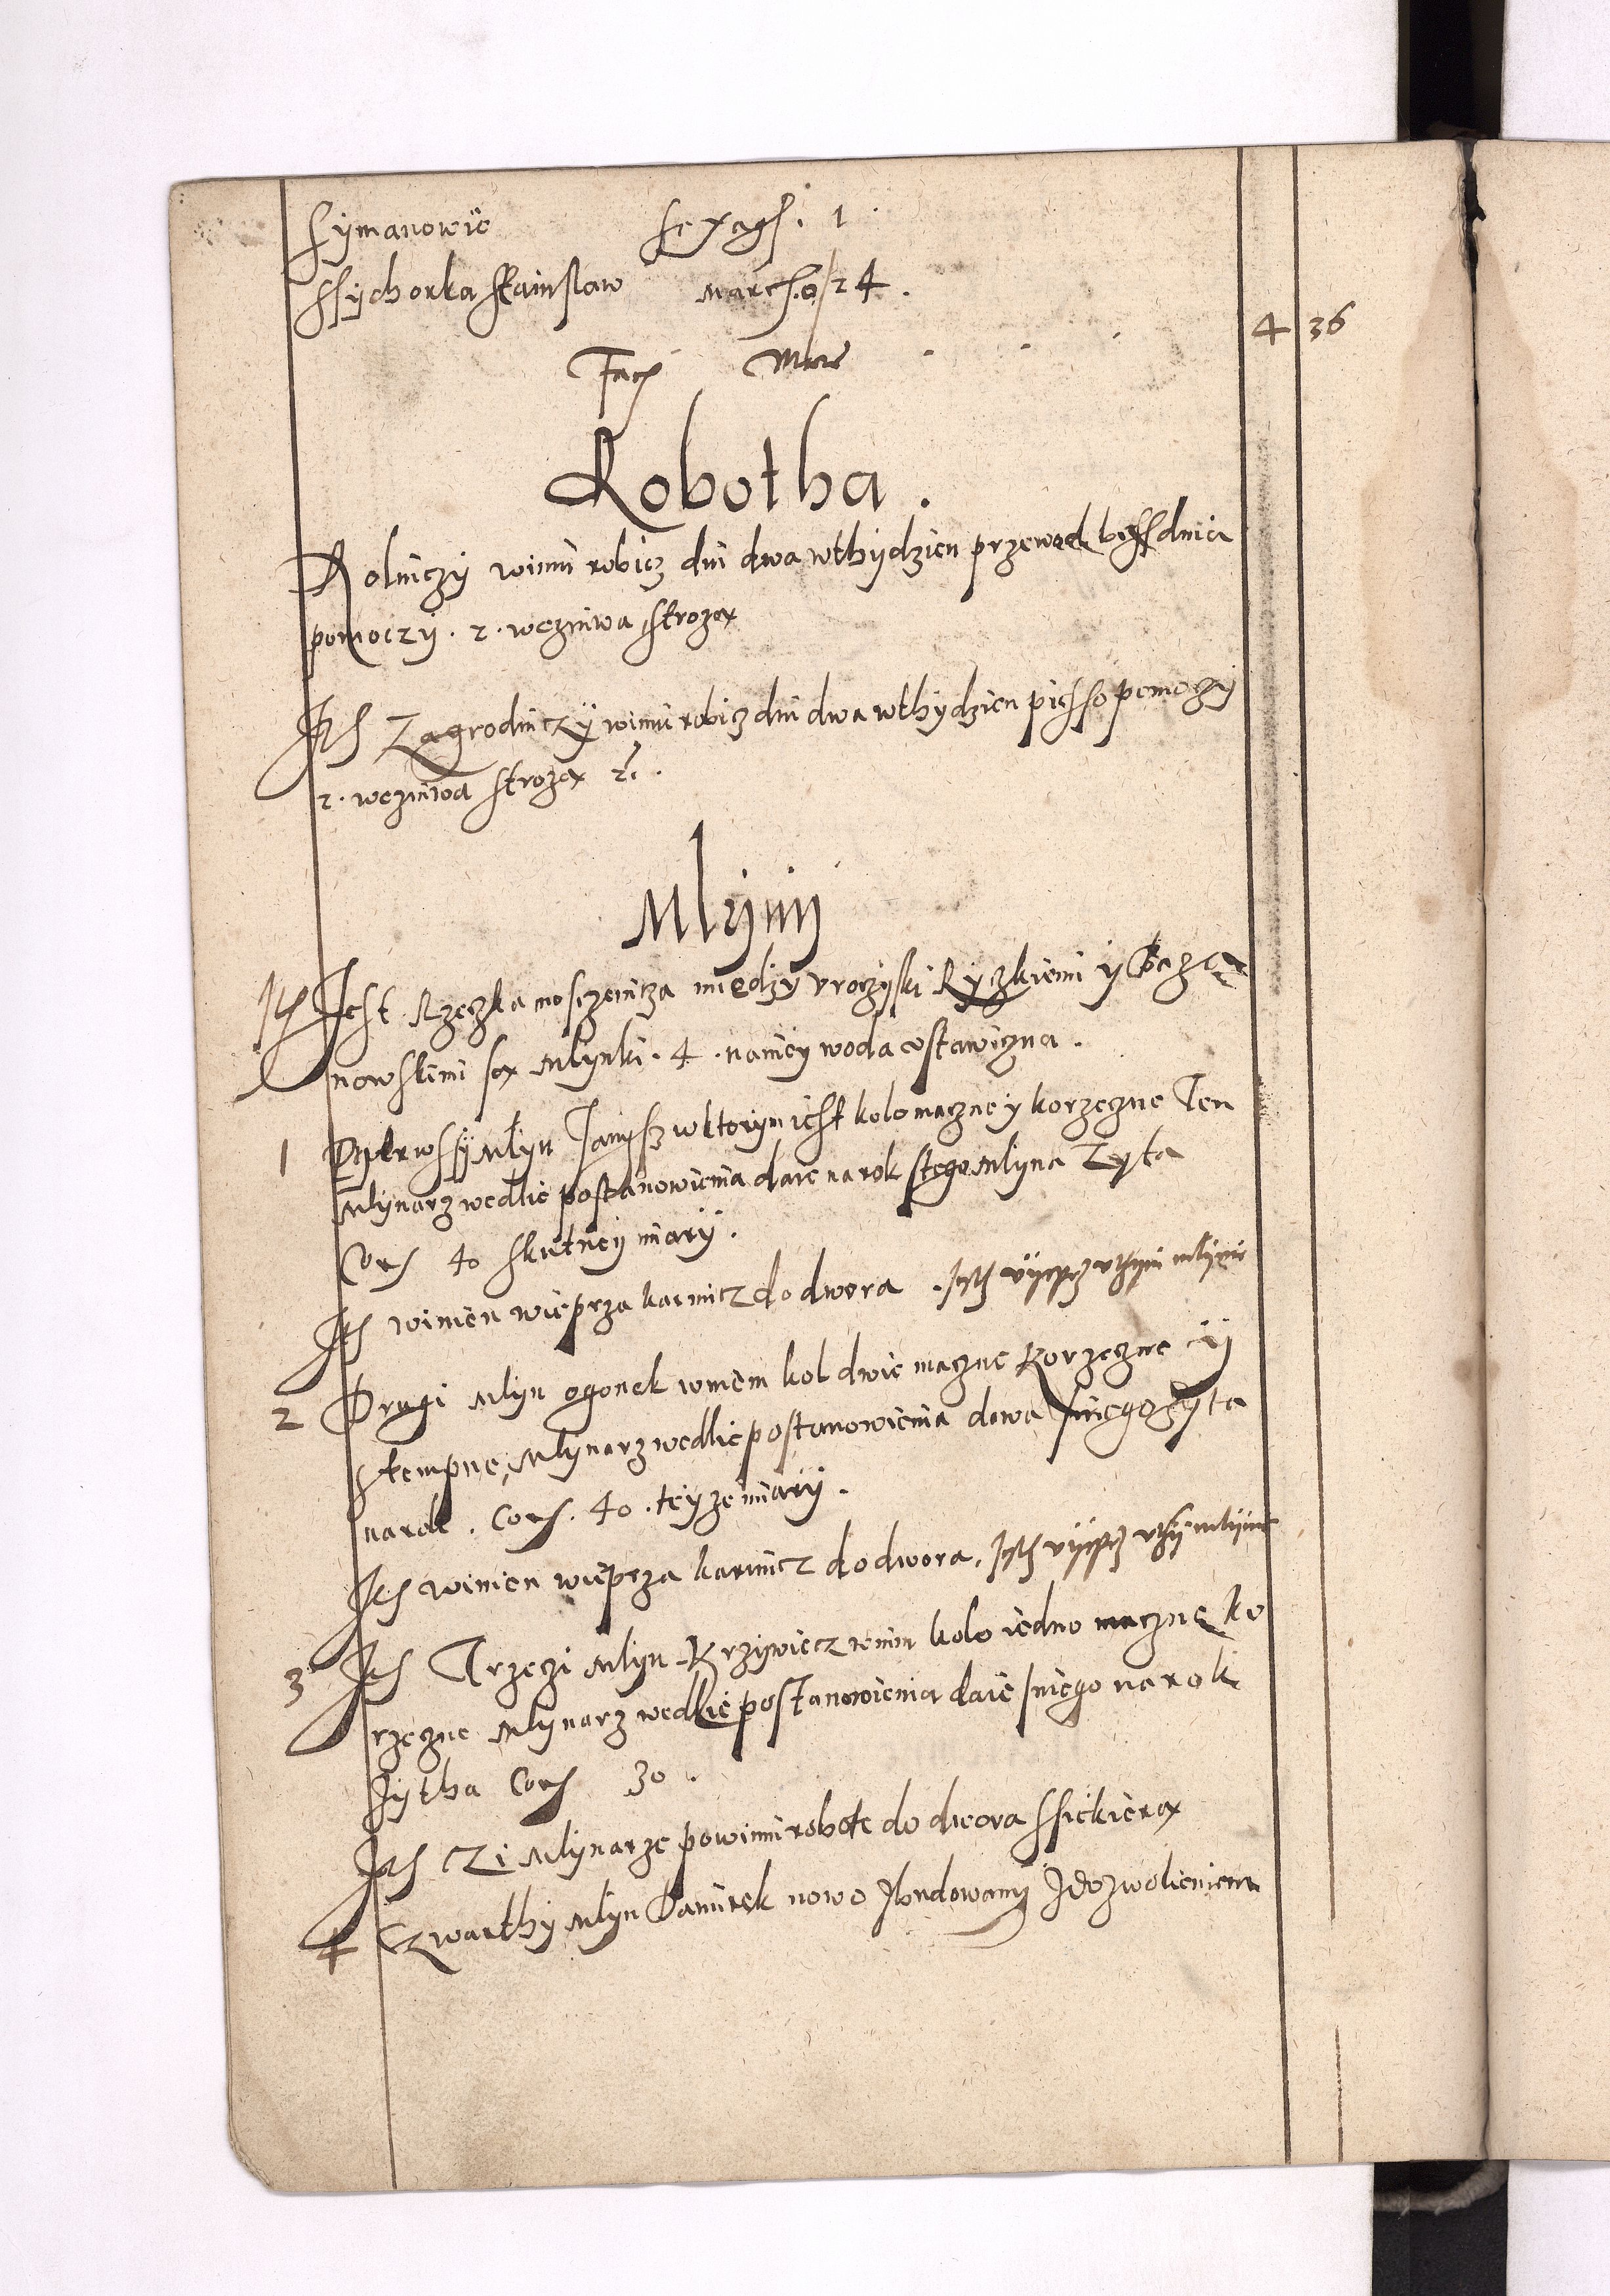 Symanowic sexag. 1
Sychorka Stanislaw march. 0/24.
Facj Mar . . . 4 36
Robotha.
Rolniczy winni robicz dni dwa wthydzien przewod bess dnia
pomoczy. 2. wezniwa strozą
Ith Zagrodniczy winni robicz dni dwa wthydzien pieszo pomoczy
2. wezniwa strozą
Mlijnij
Ith Jest Rzeczka mosczenicza między vroczyski Ryczkiemi y
nowskimi są Mlynki. 4. naniey woda ustawiczna.
1 Pyerwssy Mlyn Janysz wktorym iest kolo maczne y korzeczne Ten
Mlynarz wedlie postanowienia daie narok stego Mlyna Zyta
Cor 40 skutney miary.
Ith winien wieprza karmicz do dwora. Jest wyeprz vthym mlynie
2 Drugi Mlyn ogonek wniem kol dwie maczne korzeczne y
stempne, Mlynarz wedlie postanowienia dawa sniego Zyta
narok. Cor. 40. teyze miary.
Ith winien wieprza karmicz do dwora. Jest wyeprz vthy mlynie
3 Ith Trzeczi Mlyn Krzywiecz wnim kolo iedno maczne ko
rzeczne Mlynarz wedlie postanowienia daie sniego na rok
Zytha Cor 30.
Ith Czi Mlynarze powinni robote do dwora ssiekierą
4 Czwarthy Mlyn Danirek nowo Zbudowany Zdozwolieniem